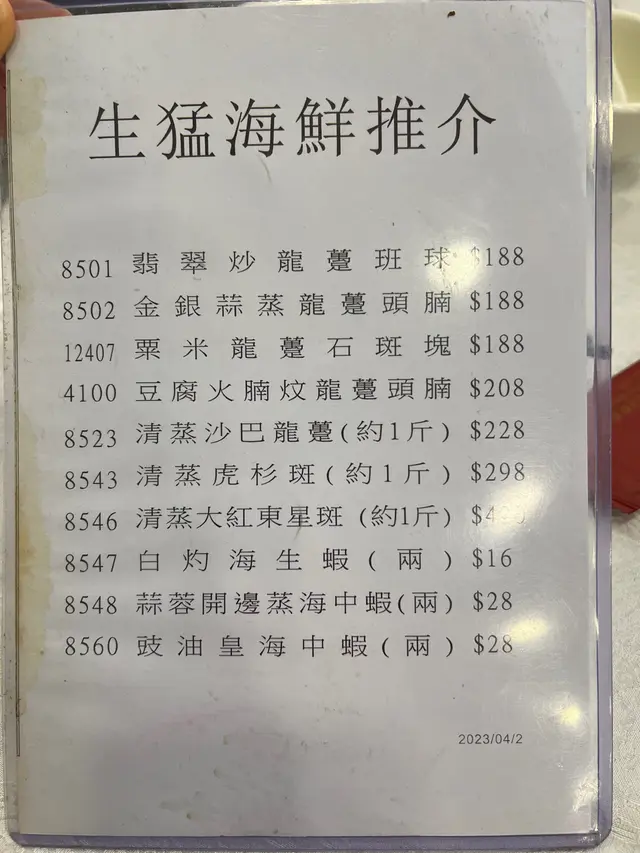 生猛海鮮推介
8501 翡翠炒龍躉班球 $188
8502 金銀蒜蒸龍躉頭腩 $188
12407 粟米龍躉石斑塊 $188
4100 豆腐火腩炆龍躉頭腩 $208
8523 清蒸沙巴龍躉(約1斤) $228
8543 清蒸虎杉斑(約1斤) $298
8546 清蒸大紅東星斑 (約1斤)
8547 白灼海生蝦(兩) $16
8548 蒜蓉開邊蒸海中蝦(兩) $28
8560 豉油皇海中蝦(兩) $28
2023/04/2